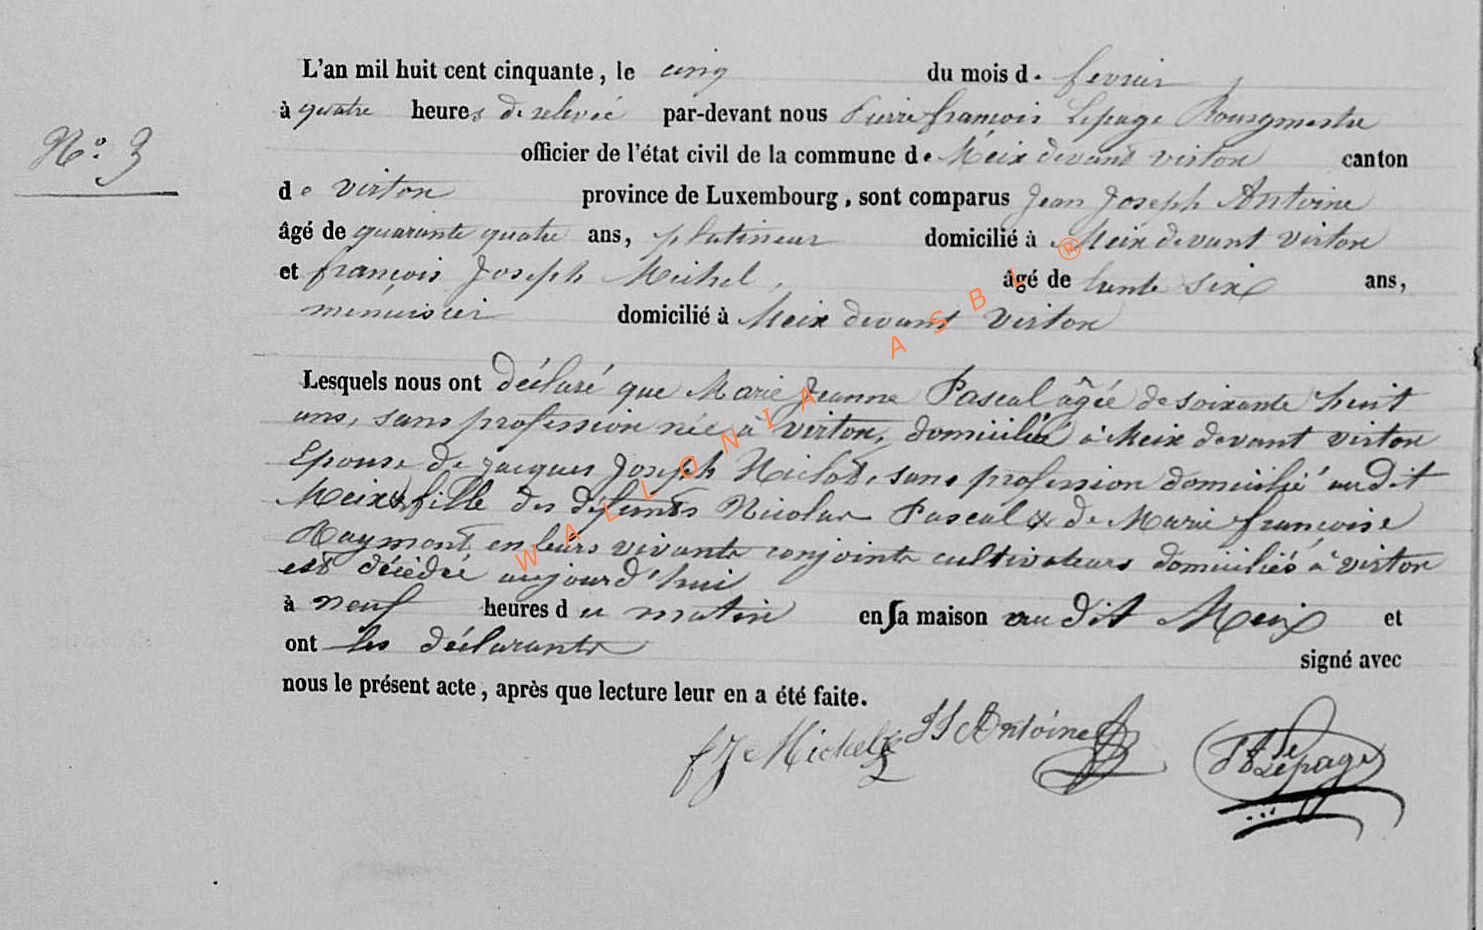 N.º 3
L'an mil huit cent cinquante, le cinq du mois d. fevrier
à quatre heures de relevée par-devant nous Pierre françois Lepage Bourgmestre
officier de l'état civil de la commune de Meix devant virton canton
de virton province de Luxembourg, sont comparus Jean Joseph Antoine
âgé de quarante quatre ans, platineur domicilié à Meix devant virton
et françois Joseph Michel, âgé de trente six ans,
menuisier domicilié à Meix devant Virton
Lesquels nous ont déclaré que Marie Jeanne Pascal âgée de soixante huit
ans, sans profession née à virton, domiciliée à Meix devant virton
Epouse de Jacques Joseph sans profession domicilié audit
Meix & fille des défunts Nicolas Pascal & de Marie françoise
Raymont, en leurs vivants conjoints cultivateurs domiciliés à virton
est décédée aujourd'hui
à neuf heures du matin en sa maison au dit Meix et
ont les déclarants signé avec
nous le présent acte, après que lecture leur en a été faite.
fJ Michel JJ Antoine Lepage
WALLONIA ASBL ®